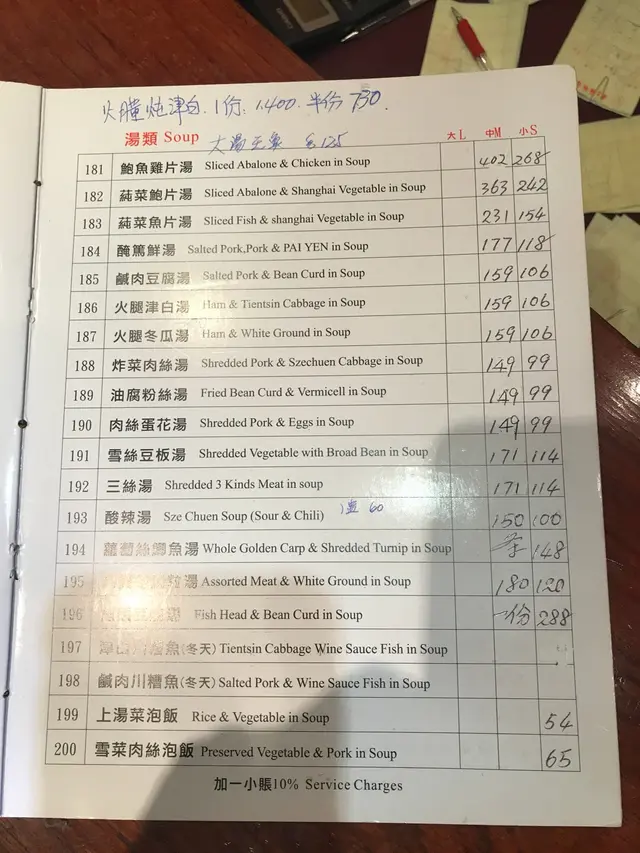 火瞳炖津白. 1份: 1400. 半份 730.
湯類 Soup 大湯 大L 中M 小S
181 鮑魚雞片湯 Sliced Abalone & Chicken in Soup 402 268
182 蒓菜鮑片湯 Sliced Abalone & Shanghai Vegetable in Soup 363 242
183 蒓菜魚片湯 Sliced Fish & shanghai Vegetable in Soup 231 154
184 醃篤鮮湯 Salted Pork,Pork & PAI YEN in Soup 177 118
185 鹹肉豆腐湯 Salted Pork & Bean Curd in Soup 159 106
186 火腿津白湯 Ham & Tientsin Cabbage in Soup 159 106
187 火腿冬瓜湯 Ham & White Ground in Soup 159 106
188 炸菜肉絲湯 Shredded Pork & Szechuen Cabbage in Soup 149 99
189 油腐粉絲湯 Fried Bean Curd & Vermicell in Soup 149 99
190 肉絲蛋花湯 Shredded Pork & Eggs in Soup 149 99
191 雪絲豆板湯 Shredded Vegetable with Broad Bean in Soup 171 114
192 三絲湯 Shredded 3 Kinds Meat in soup 171 114
193 酸辣湯 Sze Chuen Soup (Sour & Chili) 60 150 100
194 蘿蔔絲鯽魚湯 Whole Golden Carp & Shredded Turnip in Soup 148
195 粒湯 Assorted Meat & White Ground in Soup 180 120
196 Fish Head & Bean Curd in Soup 一份 288
197 (冬天) Tientsin Cabbage Wine Sauce Fish in Soup
198 鹹肉川糟魚(冬天) Salted Pork & Wine Sauce Fish in Soup
199 上湯菜泡飯 Rice & Vegetable in Soup 54
200 雪菜肉絲泡飯 Preserved Vegetable & Pork in Soup 65
加一小賬10% Service Charges